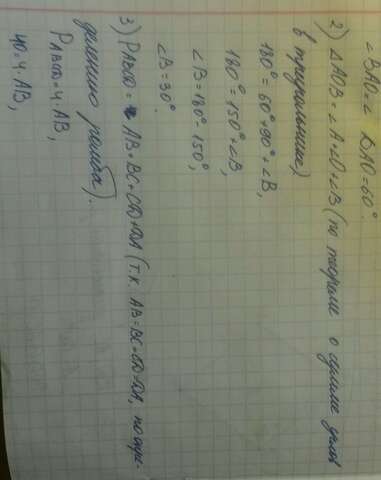 ∠BAO = ∠ DAO = 60°.
2) △AOB = ∠A + ∠O + ∠B (по теореме о сумме углов
в треугольнике)
180° = 60° + 90° + ∠B,
180° = 150° + ∠B,
∠B = 180° - 150°,
∠B = 30°.
3) PABCD = AB + BC + CD + DA (т.к. AB = BC = CD = DA, по опре-
делению ромба).
PABCD = 4 · AB,
40 = 4 · AB,